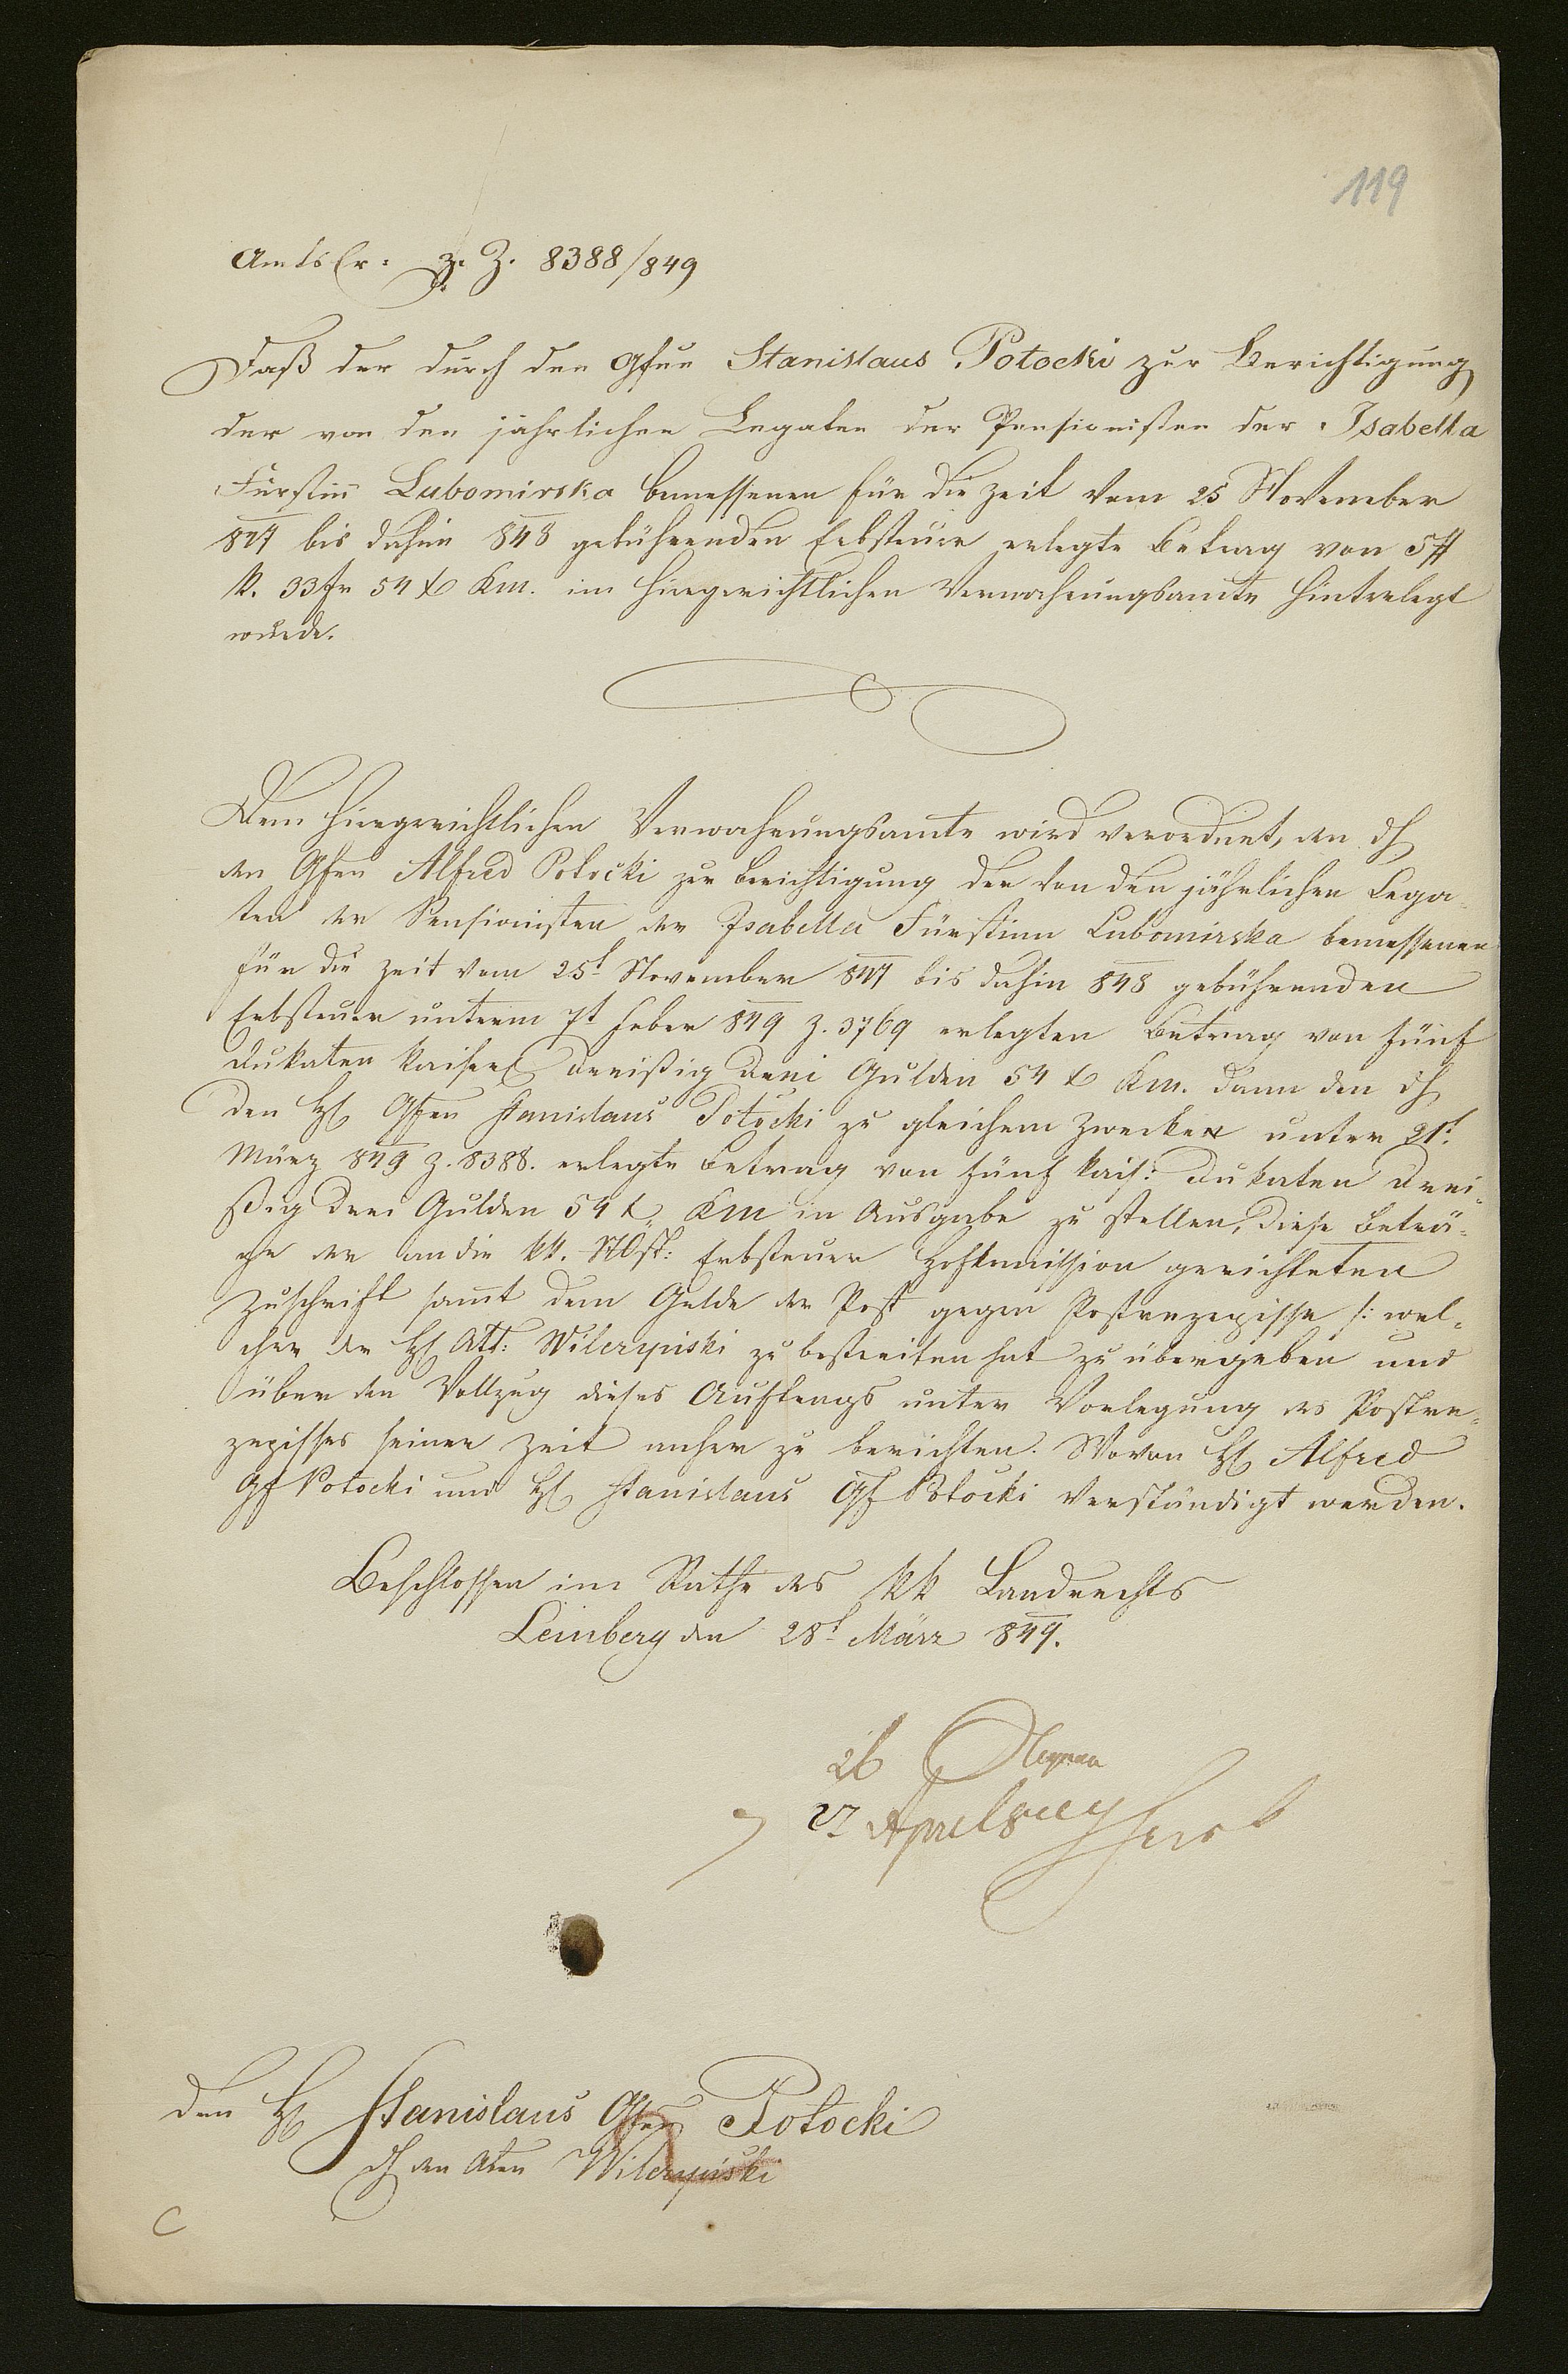 119
Amts Er: z. Z. 8388/849
Daß der durch den Gfen Stanislaus Potocki zur Berichtigung
der von den jährlichen Legaten der Pensionisten der Isabella
Fürstin Lubomirska bemessenen für die Zeit vom 25 November
847 bis dahin 848 gebührenden Erbsteuer erlegte Betrag von 5 #
k. 33 fr 54 x Km. im hiergerichtlichen Verwahrungsamte hinterlegt
wurde.
Dem hiergerichtlichen Verwahrungsamte wird verordnet, den dh
den Gfen Alfred Potocki zur Berichtigung der von den jährlichen Lega-
ten der Pensionisten der Isabella Fürstinn Lubomirska bemessenen
für die Zeit vom 25t November 847 bis dahin 848 gebührenden
Erbsteuer unterm 7t Feber 849 Z. 3769 erlegten Betrag von fünf
Dukaten kaiserl dreißig drei Gulden 54 x Km. dann den dh
den H Gfen Stanislaus Potocki zu gleichem Zwecke unter 21t
März 849 Z. 8388. erlegte Betrag von fünf kais: Dukaten drei-
ßig drei Gulden 54 x Km in Ausgabe zu stellen, diese Beträ-
ge der an die kk. NÖst: Erbsteuer Hofkommission gerichteten
Zuschrift samt dem Gelde der Post gegen Postrezepisse /: wel-
cher der H Adt: Wilczyński zu bestreiten hat zu übergeben und
über den Vollzug dieses Auftrags unter Vorlegung des Postre-
zepisses seiner Zeit anher zu berichten. Wovon H Alfred
Gf Potocki und H Stanislaus Gf Potocki verständigt werden.
Beschlossen im Rathe des kk Landrechts
Lemberg den 28t März 849.
26
27 April
den H Stanislaus Gfen Potocki
dh den Aten Wilczyński
C